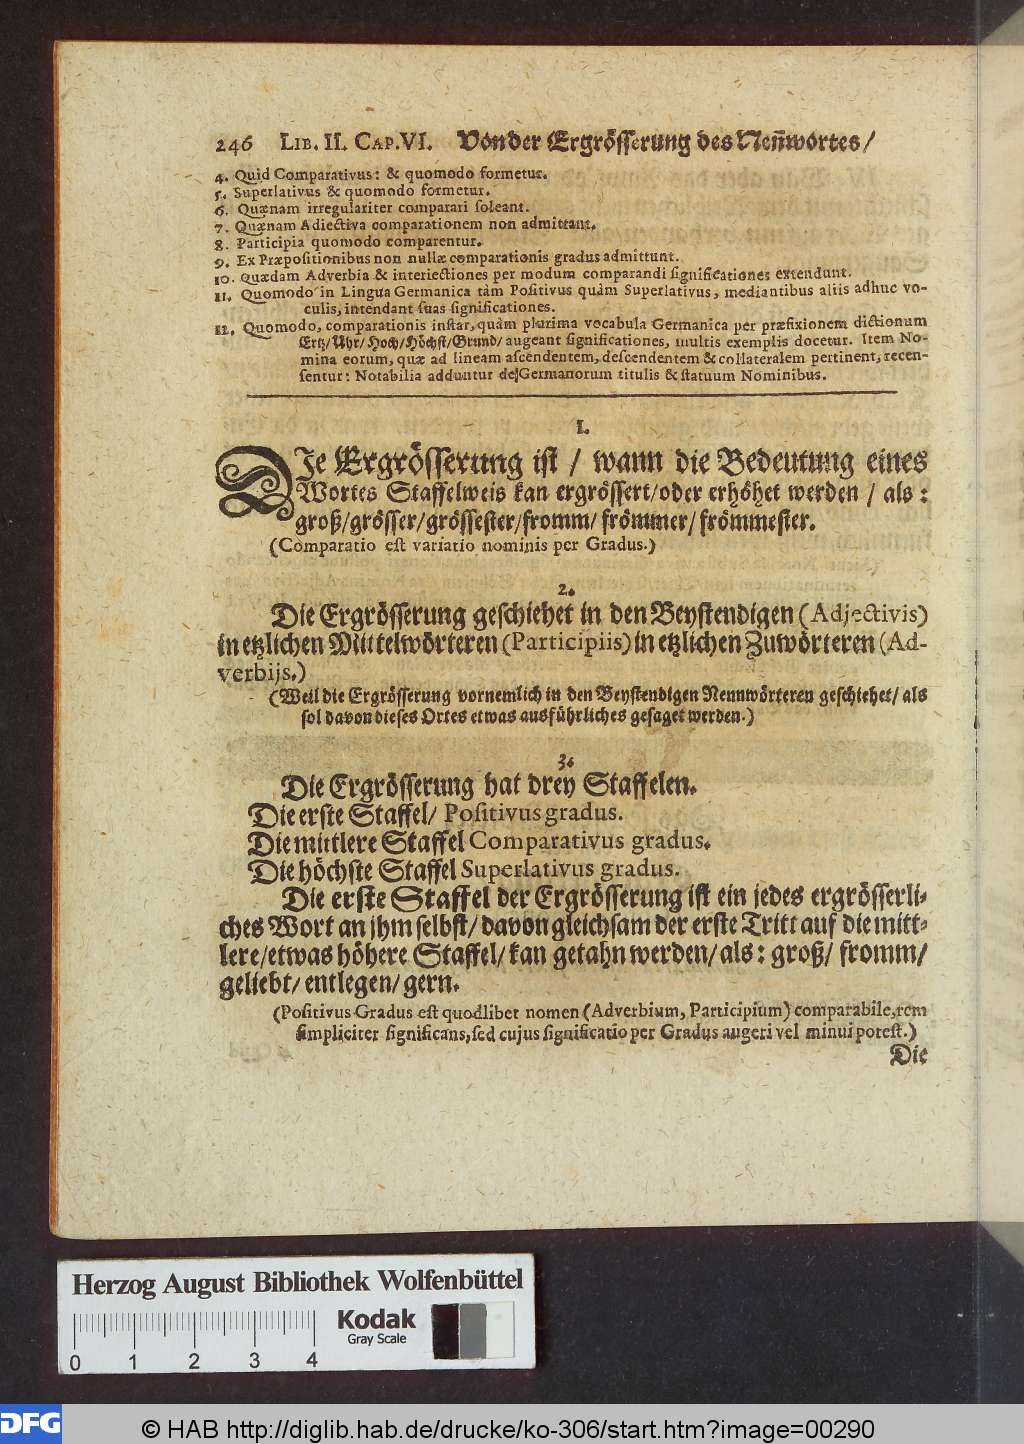 246 LIB. II. CAP. VI. Von der Ergrösserung des Neñwortes /
4. Quid Comparativus: & quomodo formetur.
5. Superlativus & quomodo formetur.
6. Quænam irregulariter comparari soleant.
7. Quænam Adiectiva comparationem non admittant.
8. Participia quomodo comparentur.
9. Ex Præpositionibus non nullæ comparationis gradus admittunt.
10. Quædam Adverbia & interiectiones per modum comparandi significationes extendunt.
11. Quomodo in Lingua Germanica tàm Positivus quàm Superlativus, mediantibus aliis adhuc vo-
culis, intendant suas significationes.
12. Quomodo, comparationis instar, quàm plurima vocabula Germanica per præfixionem dictionum
Ertz/Uhr/Hoch/Höchst/Grund/ augeant significationes, multis exemplis docetur. Item No-
mina eorum, quæ ad lineam ascendentem, descendentem & collateralem pertinent, recen-
sentur: Notabilia adduntur de Germanorum titulis & statuum Nominibus.
1.
DIe Ergrösserung ist / wann die Bedeutung eines
Wortes Staffelweis kan ergrössert/oder erhöhet werden / als:
groß/grösser/grössester/fromm/frömmer/frömmester.
(Comparatio est variatio nominis per Gradus.)
2.
Die Ergrösserung geschiehet in den Beystendigen (Adjectivis)
in etzlichen Mittelwörteren (Participiis) in etzlichen Zuwörteren (Ad-
verbijs.)
(Weil die Ergrösserung vornemlich in den Beystendigen Nennwörteren geschiehet/ als
sol davon dieses Ortes etwas ausführliches gesaget werden.)
3.
Die Ergrösserung hat drey Staffelen.
Die erste Staffel/ Positivus gradus.
Die mittlere Staffel Comparativus gradus.
Die höchste Staffel Superlativus gradus.
Die erste Staffel der Ergrösserung ist ein jedes ergrösserli-
ches Wort an jhm selbst/ davon gleichsam der erste Tritt auf die mitt-
lere/etwas höhere Staffel/ kan getahn werden/ als: groß/ fromm/
geliebt/ entlegen/ gern.
(Positivus Gradus est quodlibet nomen (Adverbium, Participium) comparabile, rem
simpliciter significans, sed cujus significatio per Gradus augeri vel minui potest.)
Die
Herzog August Bibliothek Wolfenbüttel
Kodak
Gray Scale
0 1 2 3 4
DFG
© HAB http://diglib.hab.de/drucke/ko-306/start.htm?image=00290